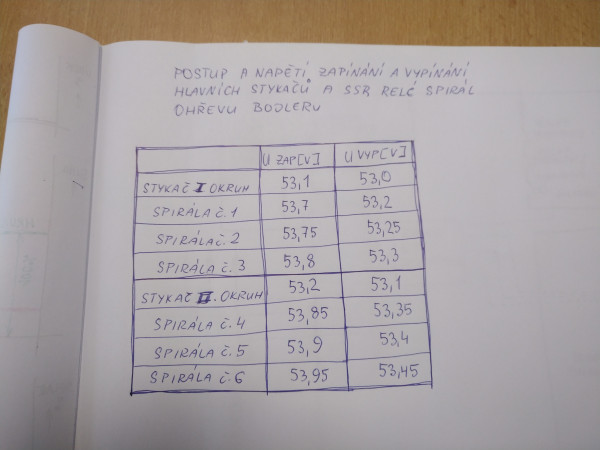 POSTUP A NAPĚTÍ ZAPÍNÁNÍ A VYPÍNÁNÍ
HLAVNÍCH STYKAČŮ A SSR RELÉ SPIRÁL
OHŘEVU BOJLERU
U ZAP[V] U VYP[V]
STYKAČ I OKRUH 53,1 53,0
SPIRÁLA Č.1 53,7 53,2
SPIRÁLA Č.2 53,75 53,25
SPIRÁLA Č.3 53,8 53,3
STYKAČ II. OKRUH 53,2 53,1
SPIRÁLA Č.4 53,85 53,35
SPIRÁLA Č.5 53,9 53,4
SPIRÁLA Č.6 53,95 53,45